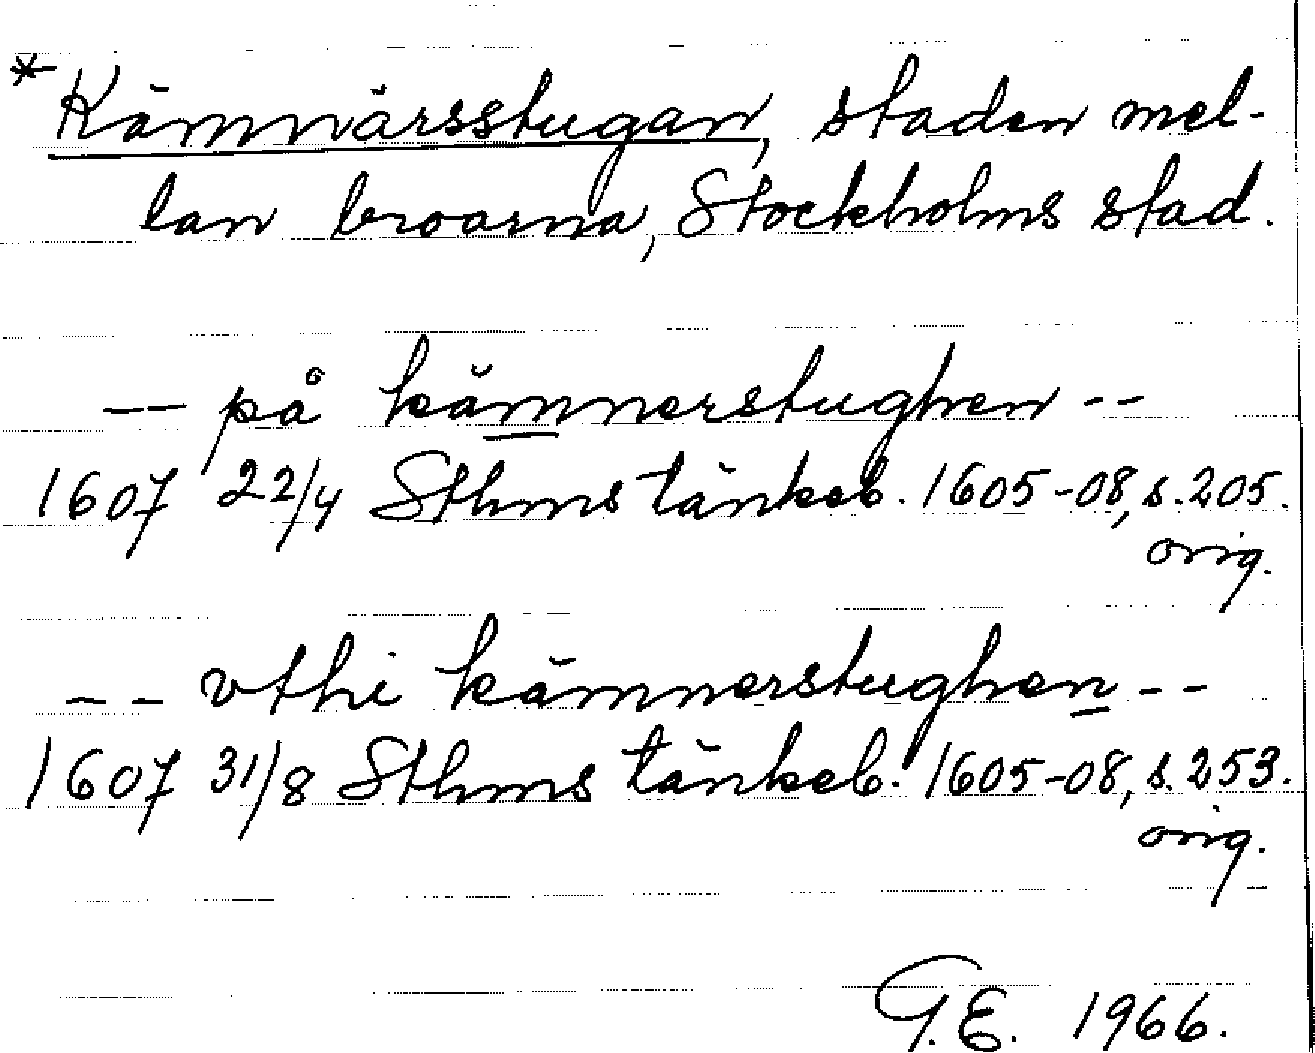 *Kämnärsstugan, staden mel-
lan broarna, Stockholms stad.
-- på kämnerstughen --
1607 22/4 Sthms tänkeb. 1605-08, s. 205.
orig.
-- vthi kämnerstughen --
1607 31/8 Sthms tänkeb. 1605-08, s. 253.
orig.
G.E. 1966.